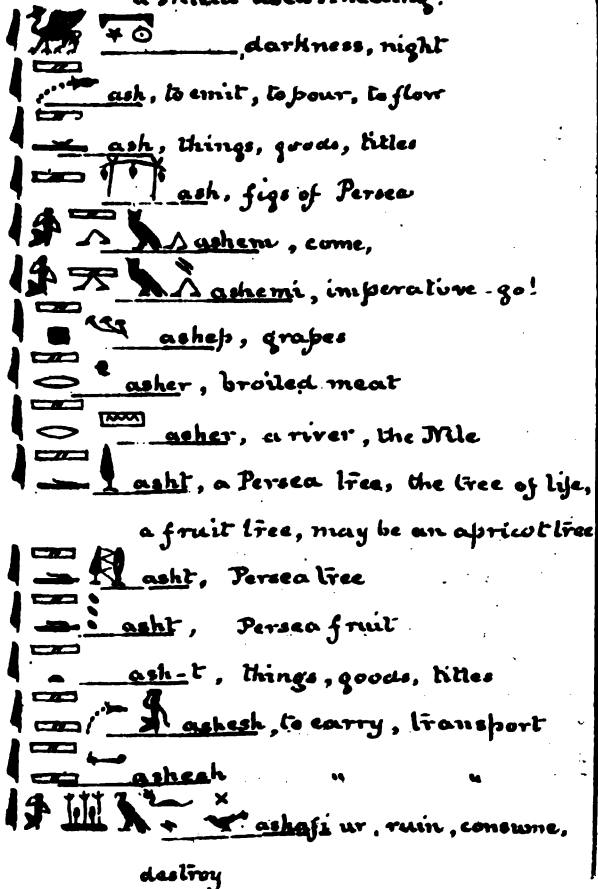 , darkness, night
ash, to emit, to pour, to flow
ash, things, goods, titles
ash, figs of Persea
ashem, come,
ashemi, imperative - go!
ashep, grapes
asher, broiled meat
asher, a river, the Nile
asht, a Persea tree, the tree of life,
a fruit tree, may be an apricot tree
asht, Persea tree
asht, Persea fruit
ash-t, things, goods, titles
ashesh, to carry, transport
ashesh " "
ashafi ur, ruin, consume,
destroy